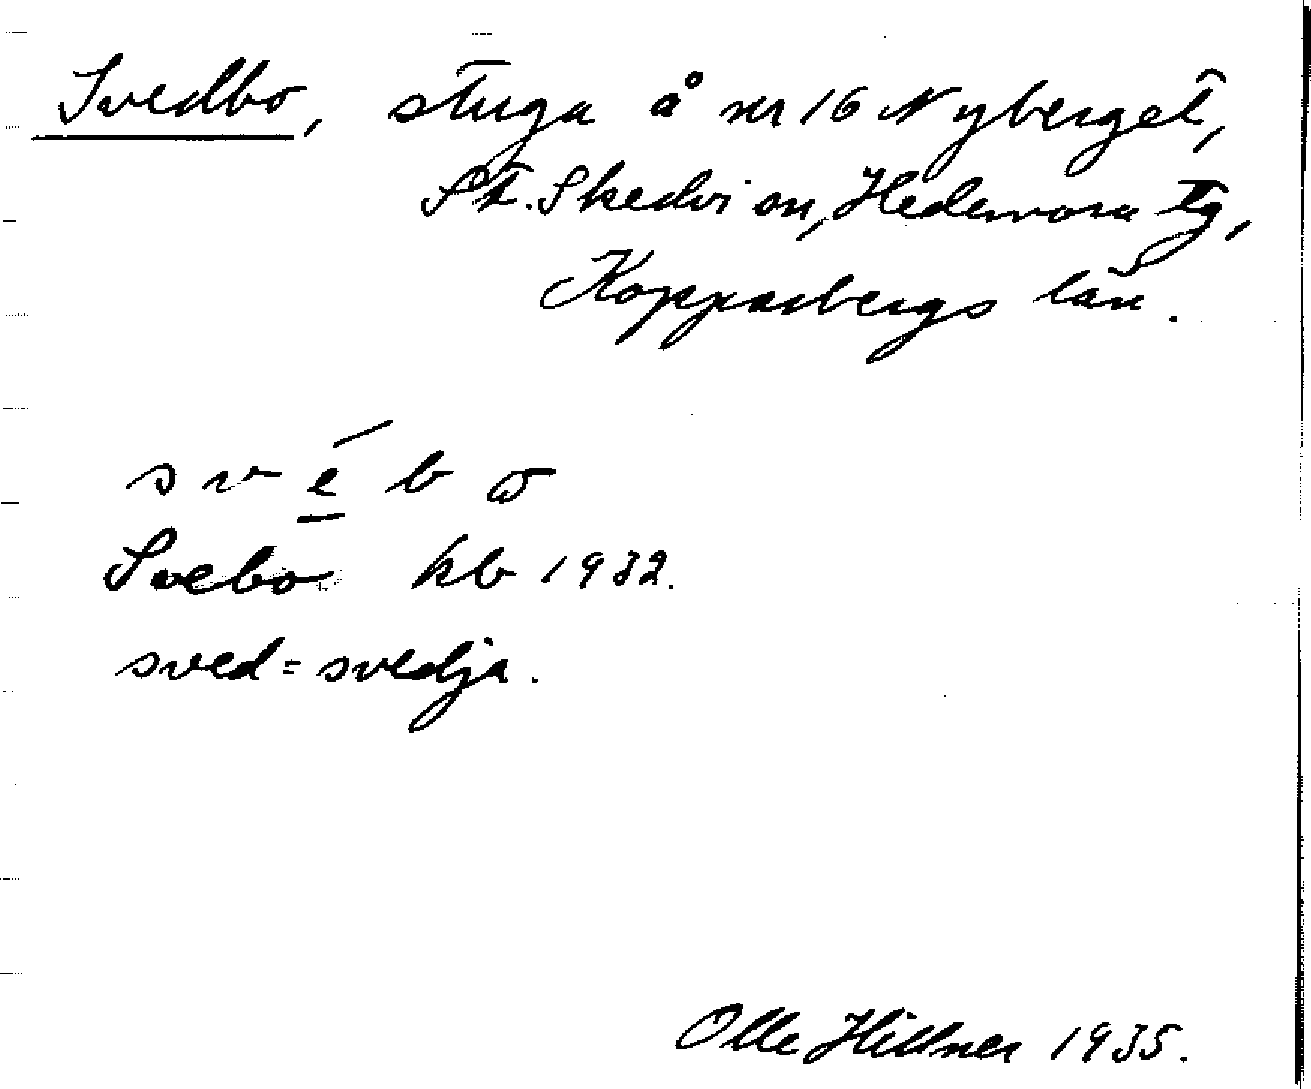 Svedbo, stuga å nr 16 Nyberget,
St. Skedvi sn, Hedemora tg,
Kopparbergs län.
svébω
Svebo kb 1932.
sved = svedja.
Olle Hillner 1935.